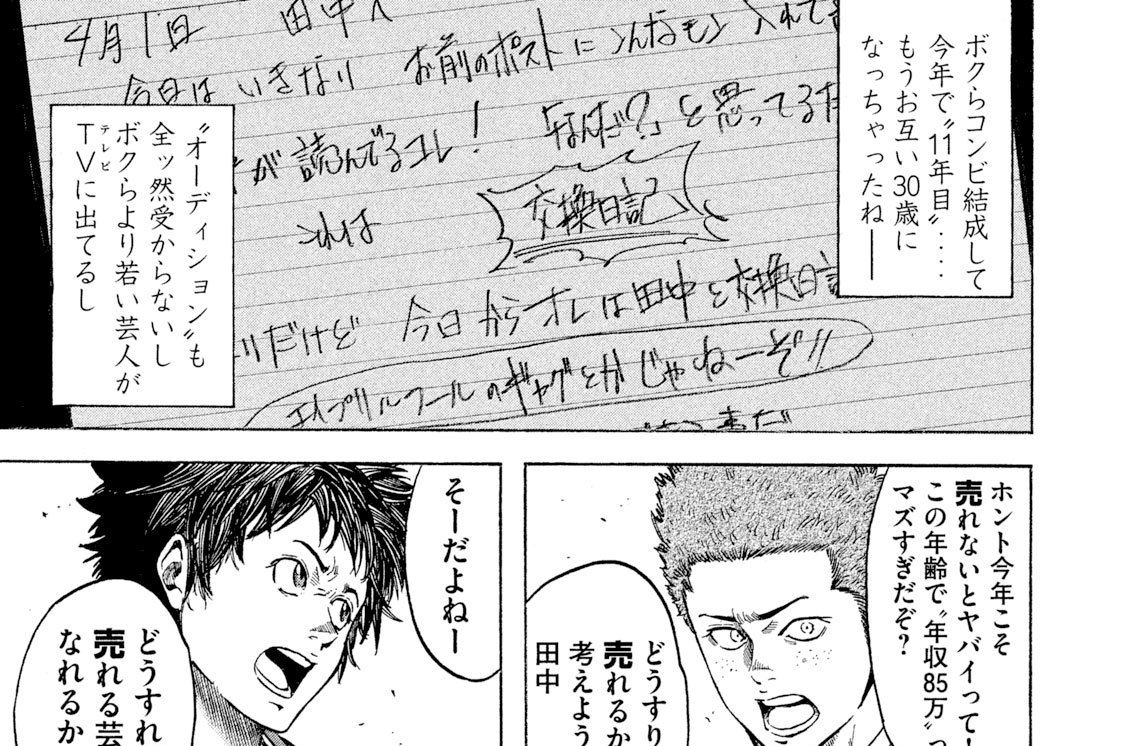 ボクらコンビ結成して
今年で〝11年目〟‥‥
もうお互い30歳に
なっちゃったね――
4月1日 田中へ
今日は いきなり お前のポストに こんなモン 入れて
が 読んでるコレ! 「なんだ?」と思ってるだ
これは 交換日記
だけど 今日からオレは田中と交換日記
エイプリルフールのギャグとかじゃねーぞ!!
〝オーディション〟も
全ッ然受からないし
ボクらより若い芸人が
TVに出てるし
テレビ
ホント今年こそ
売れないとヤバイって!
この年齢で〝年収85万〟っ
マズすぎだぞ?
どうすり
売れるか
考えよう
田中
そーだよねー
どうすれ
売れる芸
なれるか